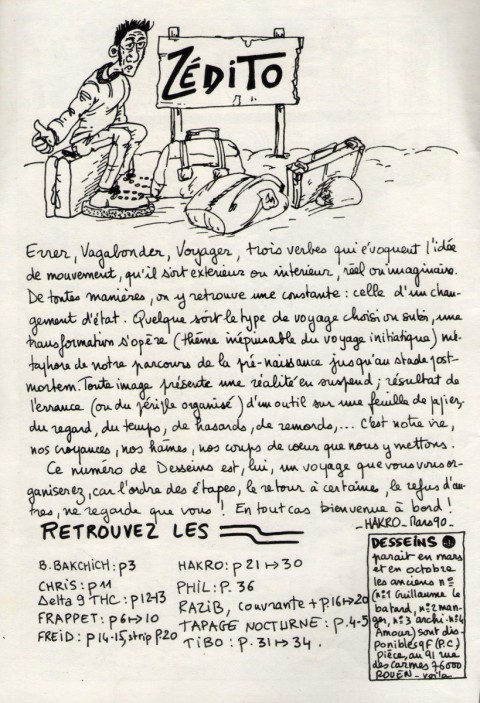 ZÉDITO
Errer, Vagabonder, Voyager, trois verbes qui évoquent l'idée
de mouvement, qu'il soit extérieur ou intérieur, réel ou imaginaire.
De toutes manières, on y retrouve une constante : celle d'un chan-
gement d'état. Quelque soit le type de voyage choisi ou subi, une
transformation s'opère (thème inépuisable du voyage initiatique) mé-
taphore de notre parcours de la pré-naissance jusqu'au stade post-
mortem. Toute image présente une réalité en suspend ; résultat de
l'errance (ou du périple organisé) d'un outil sur une feuille de papier,
du regard, du temps, de hasards, de remords,... c'est notre vie,
nos croyances, nos haines, nos coups de coeur que nous y mettons.
Ce numéro de Desseins est, lui, un voyage que vous vous or-
ganiserez, car l'ordre des étapes, le retour à certaines, le refus d'au-
tres, ne regarde que vous ! En tout cas bienvenue à bord !
_HAKRO_Mars90_
RETROUVEZ LES
B.BAKCHICH : p3
CHRIS : p 11
Delta 9 THC : p12→13
FRAPPET : p6→10
FREID : p14-15, strip P.20
HAKRO : p 21→30
PHIL : P. 36
RAZIB, couvrante + p16→20
TAPAGE NOCTURNE : p.4-5
TiBO : P. 31→34.
DESSEINS
parait en mars
et en octobre
les anciens n°
(n°1 Guillaume le
batard, n°2 man-
ger, n°3 archi- n°4
Amour) sont dis-
ponibles 9F (P.C.)
Pièce, au 91 rue
des carmes 76000
ROUEN - voila